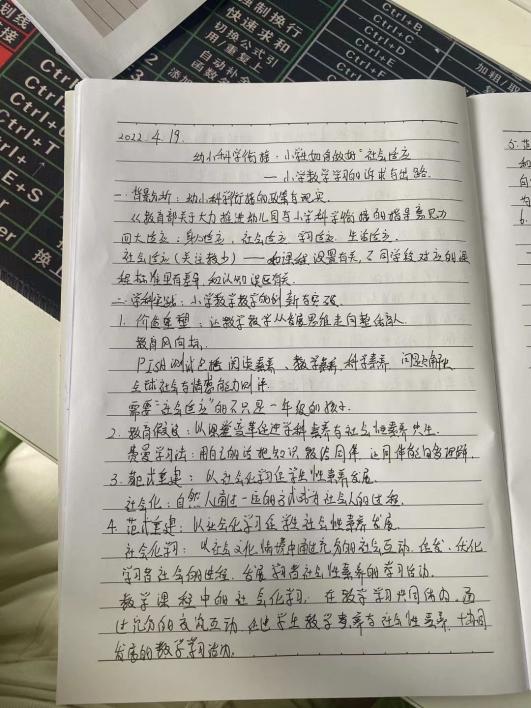 强制换行
快速求和
切换公式引
用/重复上
自动补全
函数
添加
Ctrl+B
Ctrl+C
Ctrl+D
Ctrl+E
Ctrl+F
加粗/取
划线
Ctrl
Ctrl
Ctrl+T
E+S
2022.4.19.
幼小科学衔接·小学如何做好“社会适应
——小学数学学习的诉求与出路.
一.背景分析:幼小科学衔接的政策与现实.
从教育部关于大力推进幼儿园与小学科学衔接的指导意见
四大适应:身心适应、社会适应、学习适应、生活适应.
社会适应(关注较少)——和课程设置有关,不同学段对应的课
程标准里有差异,和认知误区有关.
二.学科实践:小学数学教育的创新与突破.
1.价值重塑:让数学教学从发展思维走向整体育人
教育风向标.
PISA测试包括阅读素养、数学素养、科学素养、问题解决
与社会与情感能力测评.
需要“社会适应”的不只是一年级的孩子.
2.教育假设:以课堂变革促进学科素养与社会性素养共生.
费曼学习法:用自己的话把知识教给同伴,让同伴能明白理解.
3.范式重建:以社会化学习促学生社会性素养发展.
社会化:自然人通过一定的方式成为社会人的过程.
4.范式重建:以社会化学习促学生社会性素养发展.
社会化学习:以社会文化情境中通过充分的社会互动,促发、优化
学习者社会的进程,发展学习者社会性素养的学习活动.
数学课程中的社会化学习:在数学学习共同体内,通
过充分的交流互动,促进学生数学素养与社会性素养协同
发展的数学学习活动.
5.范
和
自
为
6.